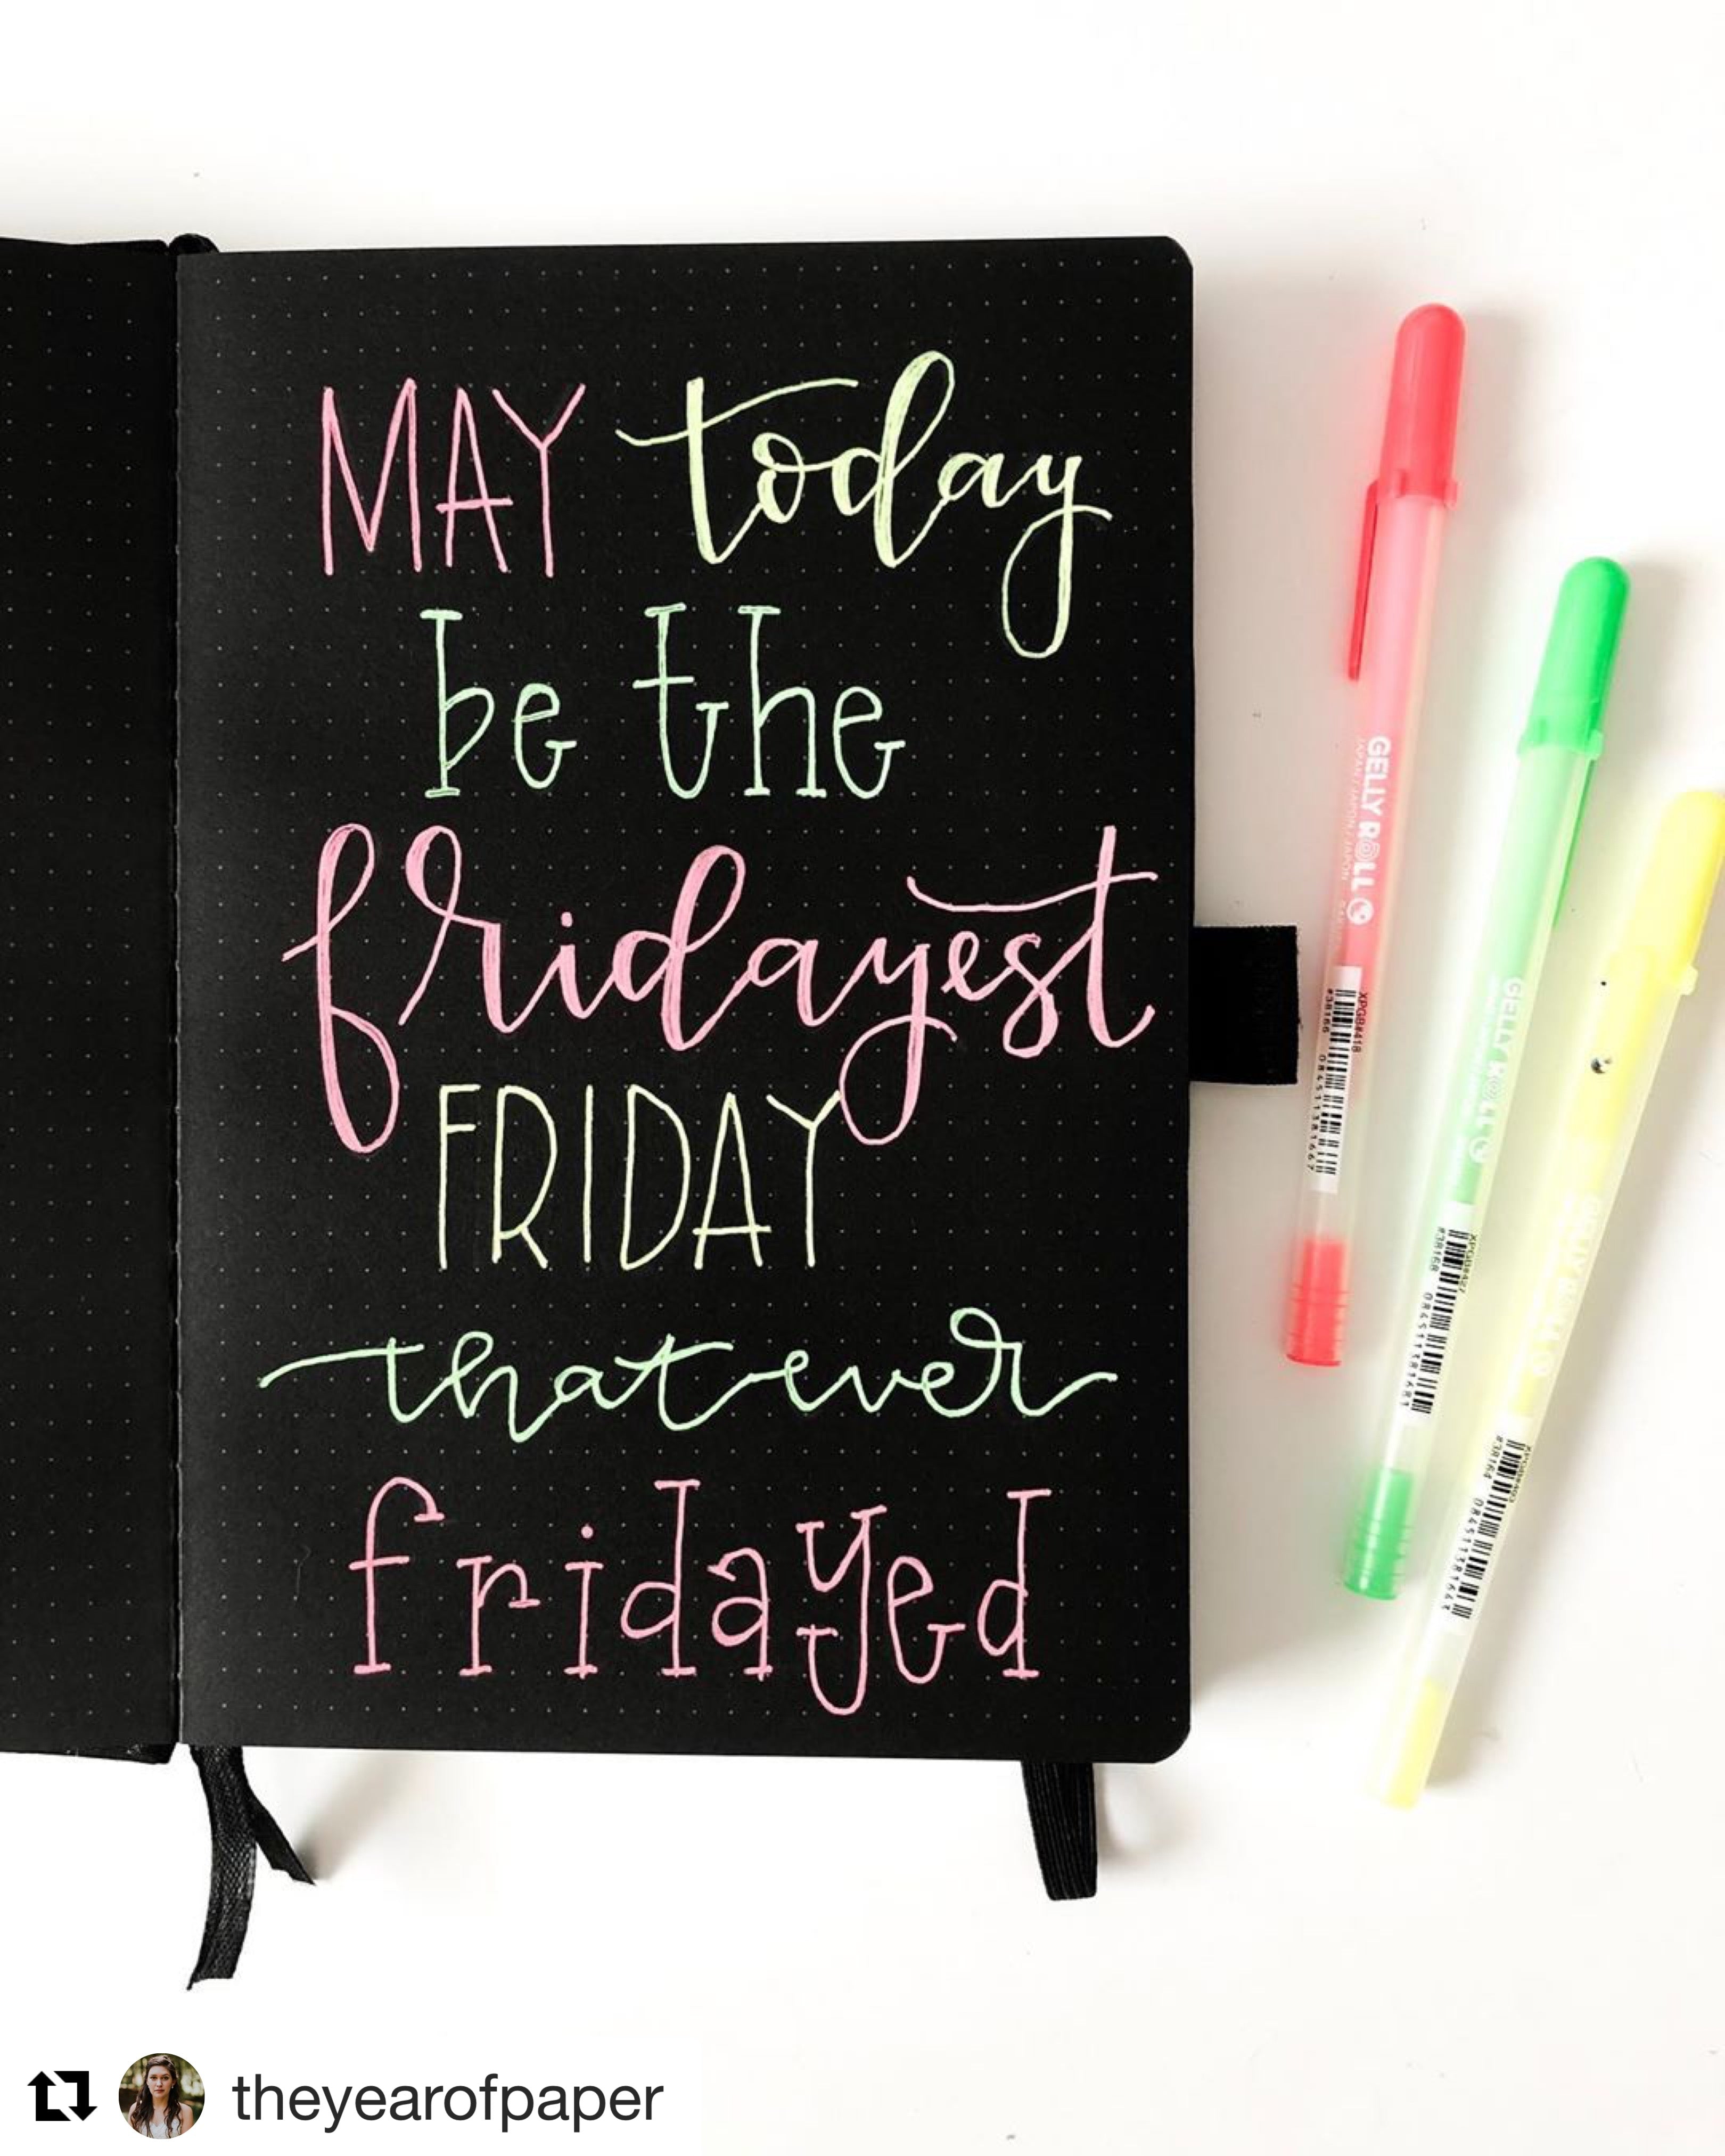 MAY today
be the
fridayest
FRIDAY
that ever
fridayed
GELLY ROLL
JAPAN / JAPON / JAPON
XPGB#418
#38166 084511381667
GELLY ROLL
#38168 084511381681
#38164
theyearofpaper